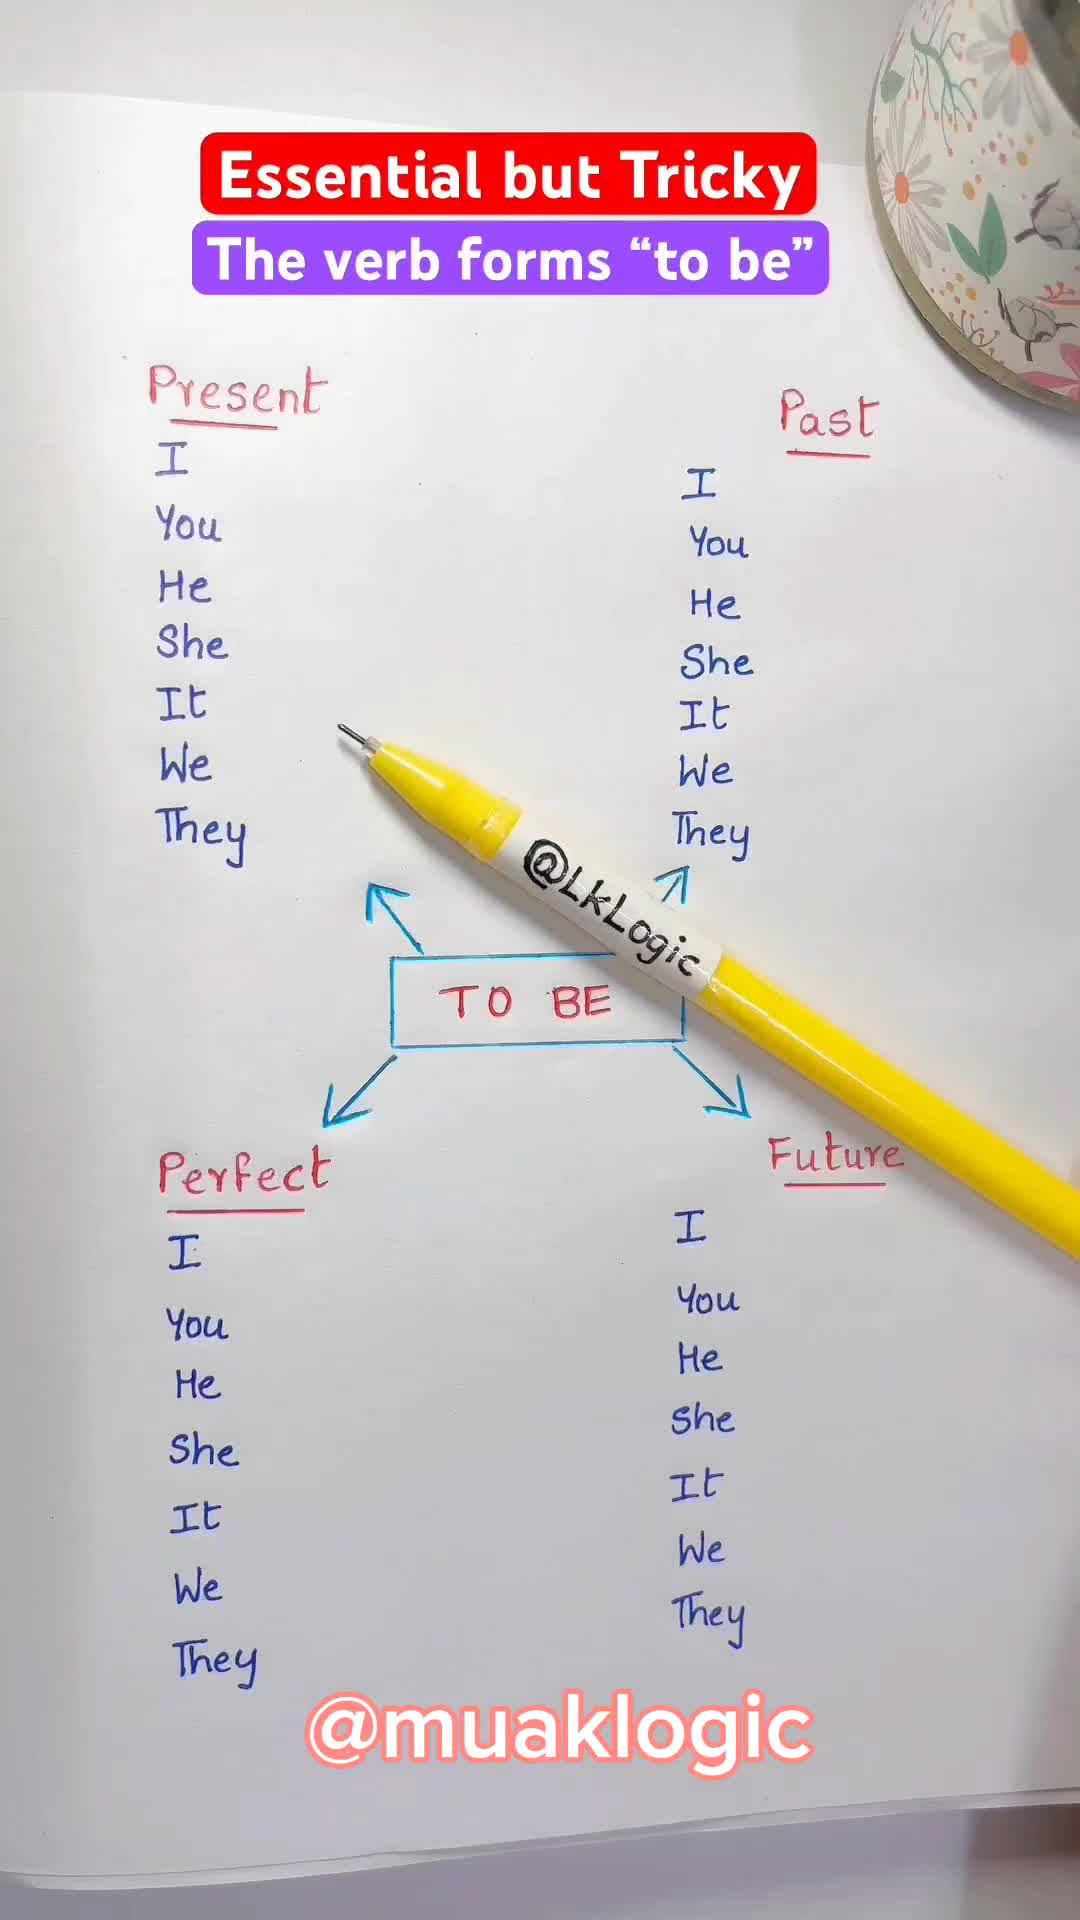 Essential but Tricky
The verb forms “to be”
Present
I
You
He
She
It
We
They
Past
I
You
He
She
It
We
They
@LkLogic
TO BE
Perfect
I
You
He
She
It
We
They
Future
I
You
He
She
It
We
They
@muaklogic